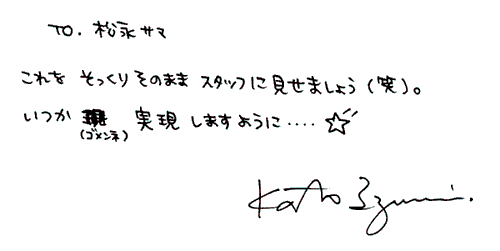 TO. 松永サマ
これを そっくりそのまま スタッフに見せましょう(笑)。
いつか 実現 しますように‥‥☆
(ゴメンネ)
Kato Izumi.